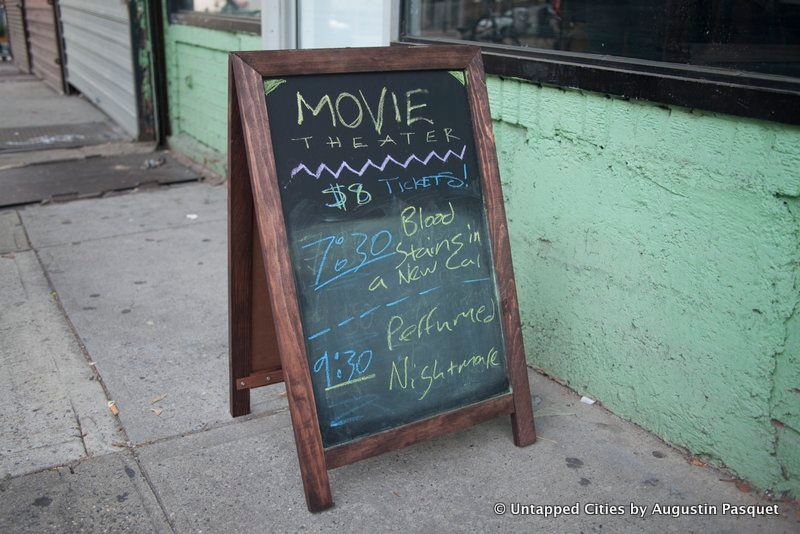 MOVIE
THEATER
$8 TICKETS!
7:30 Blood
Stains in
a New Cal
Perfumed
9:30 Nightmare
© Untapped Cities by Augustin Pasquet